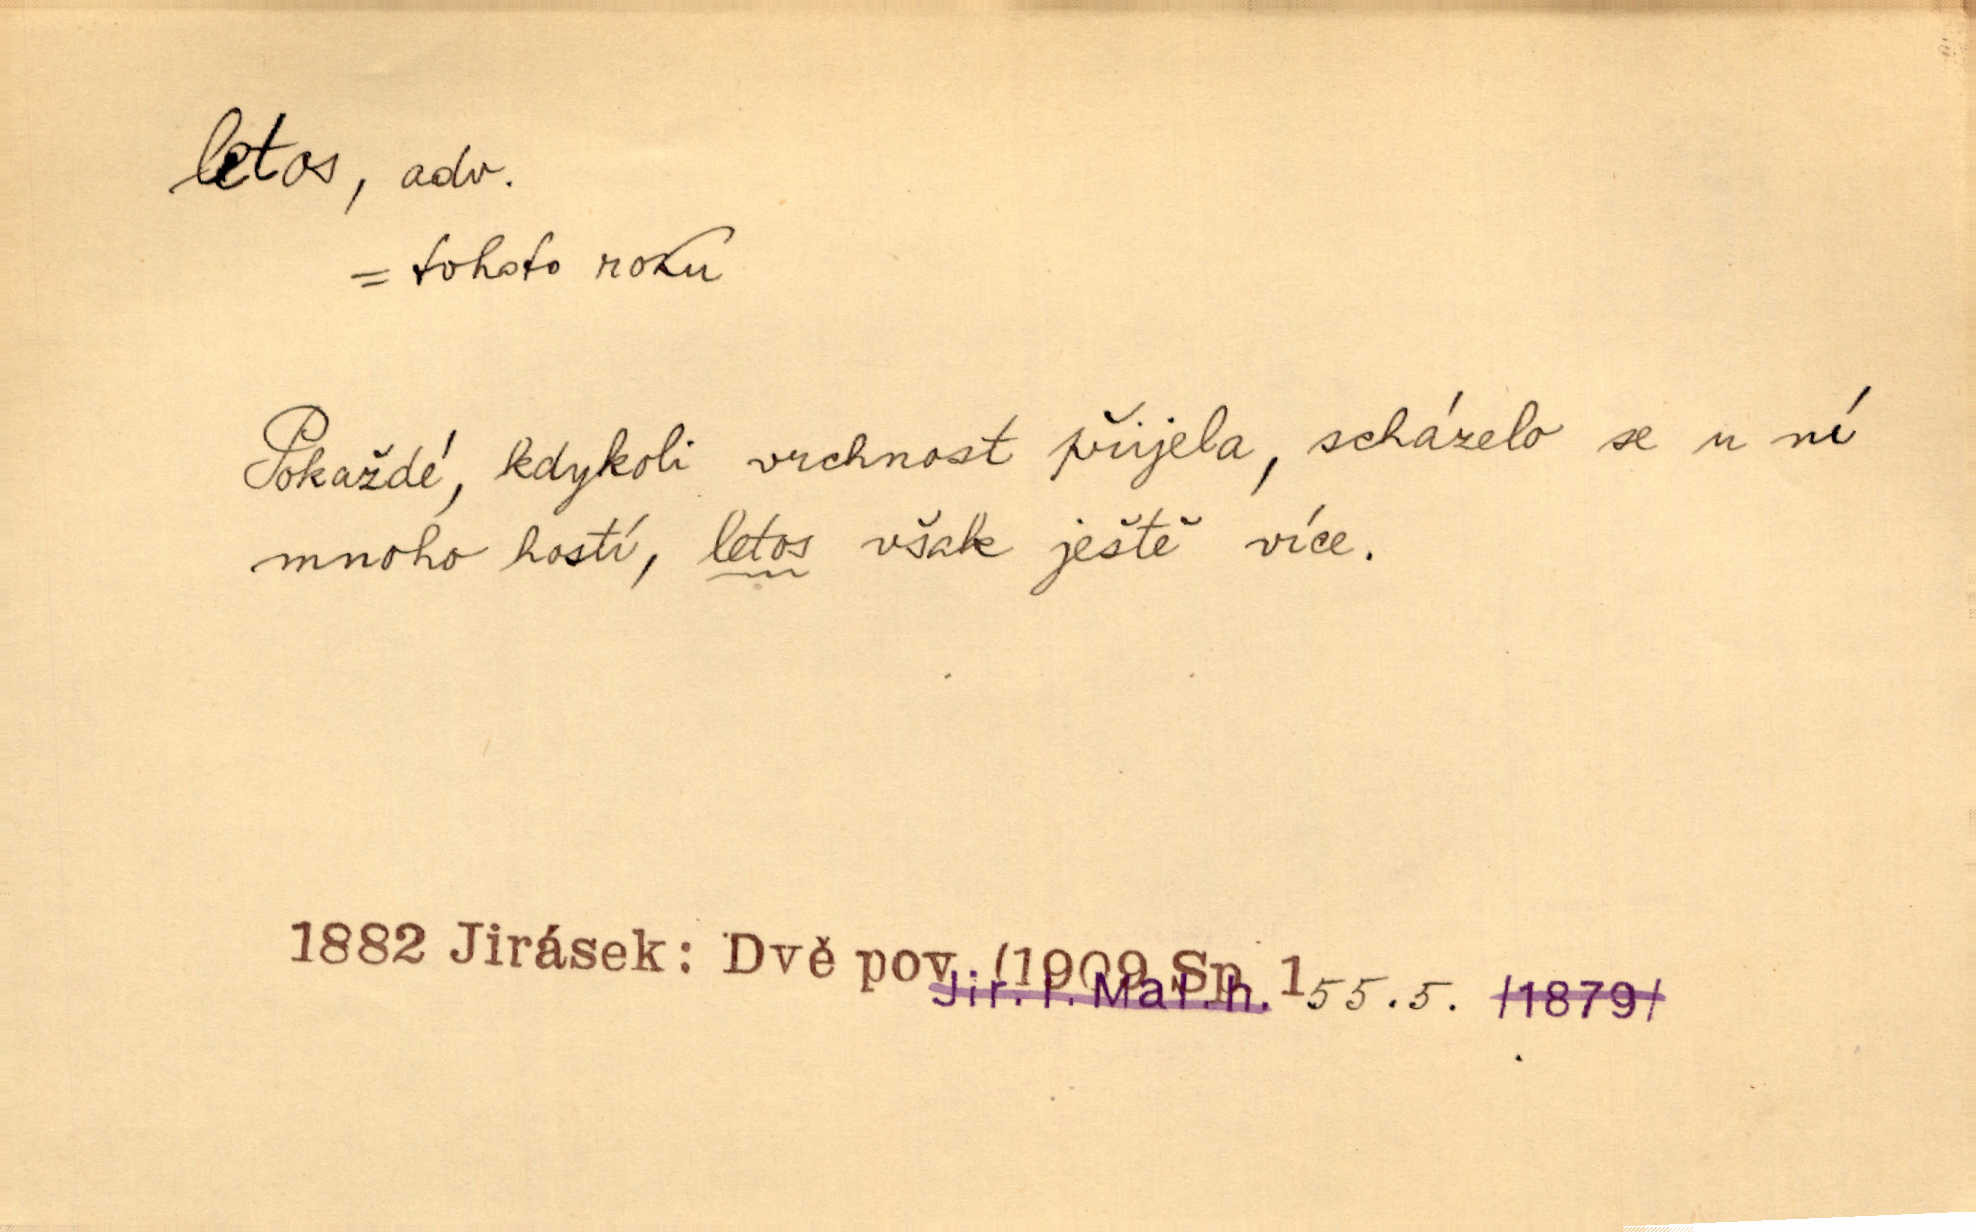 letos, adv.
= tohoto roku
Pokaždé, kdykoli vrchnost přijela, scházelo se u ní
mnoho hostí, letos však ještě více.
1882 Jirásek: Dvě pov. (1909 Sp. 1 55.5. /1879/
Jir. I. Mal. h.